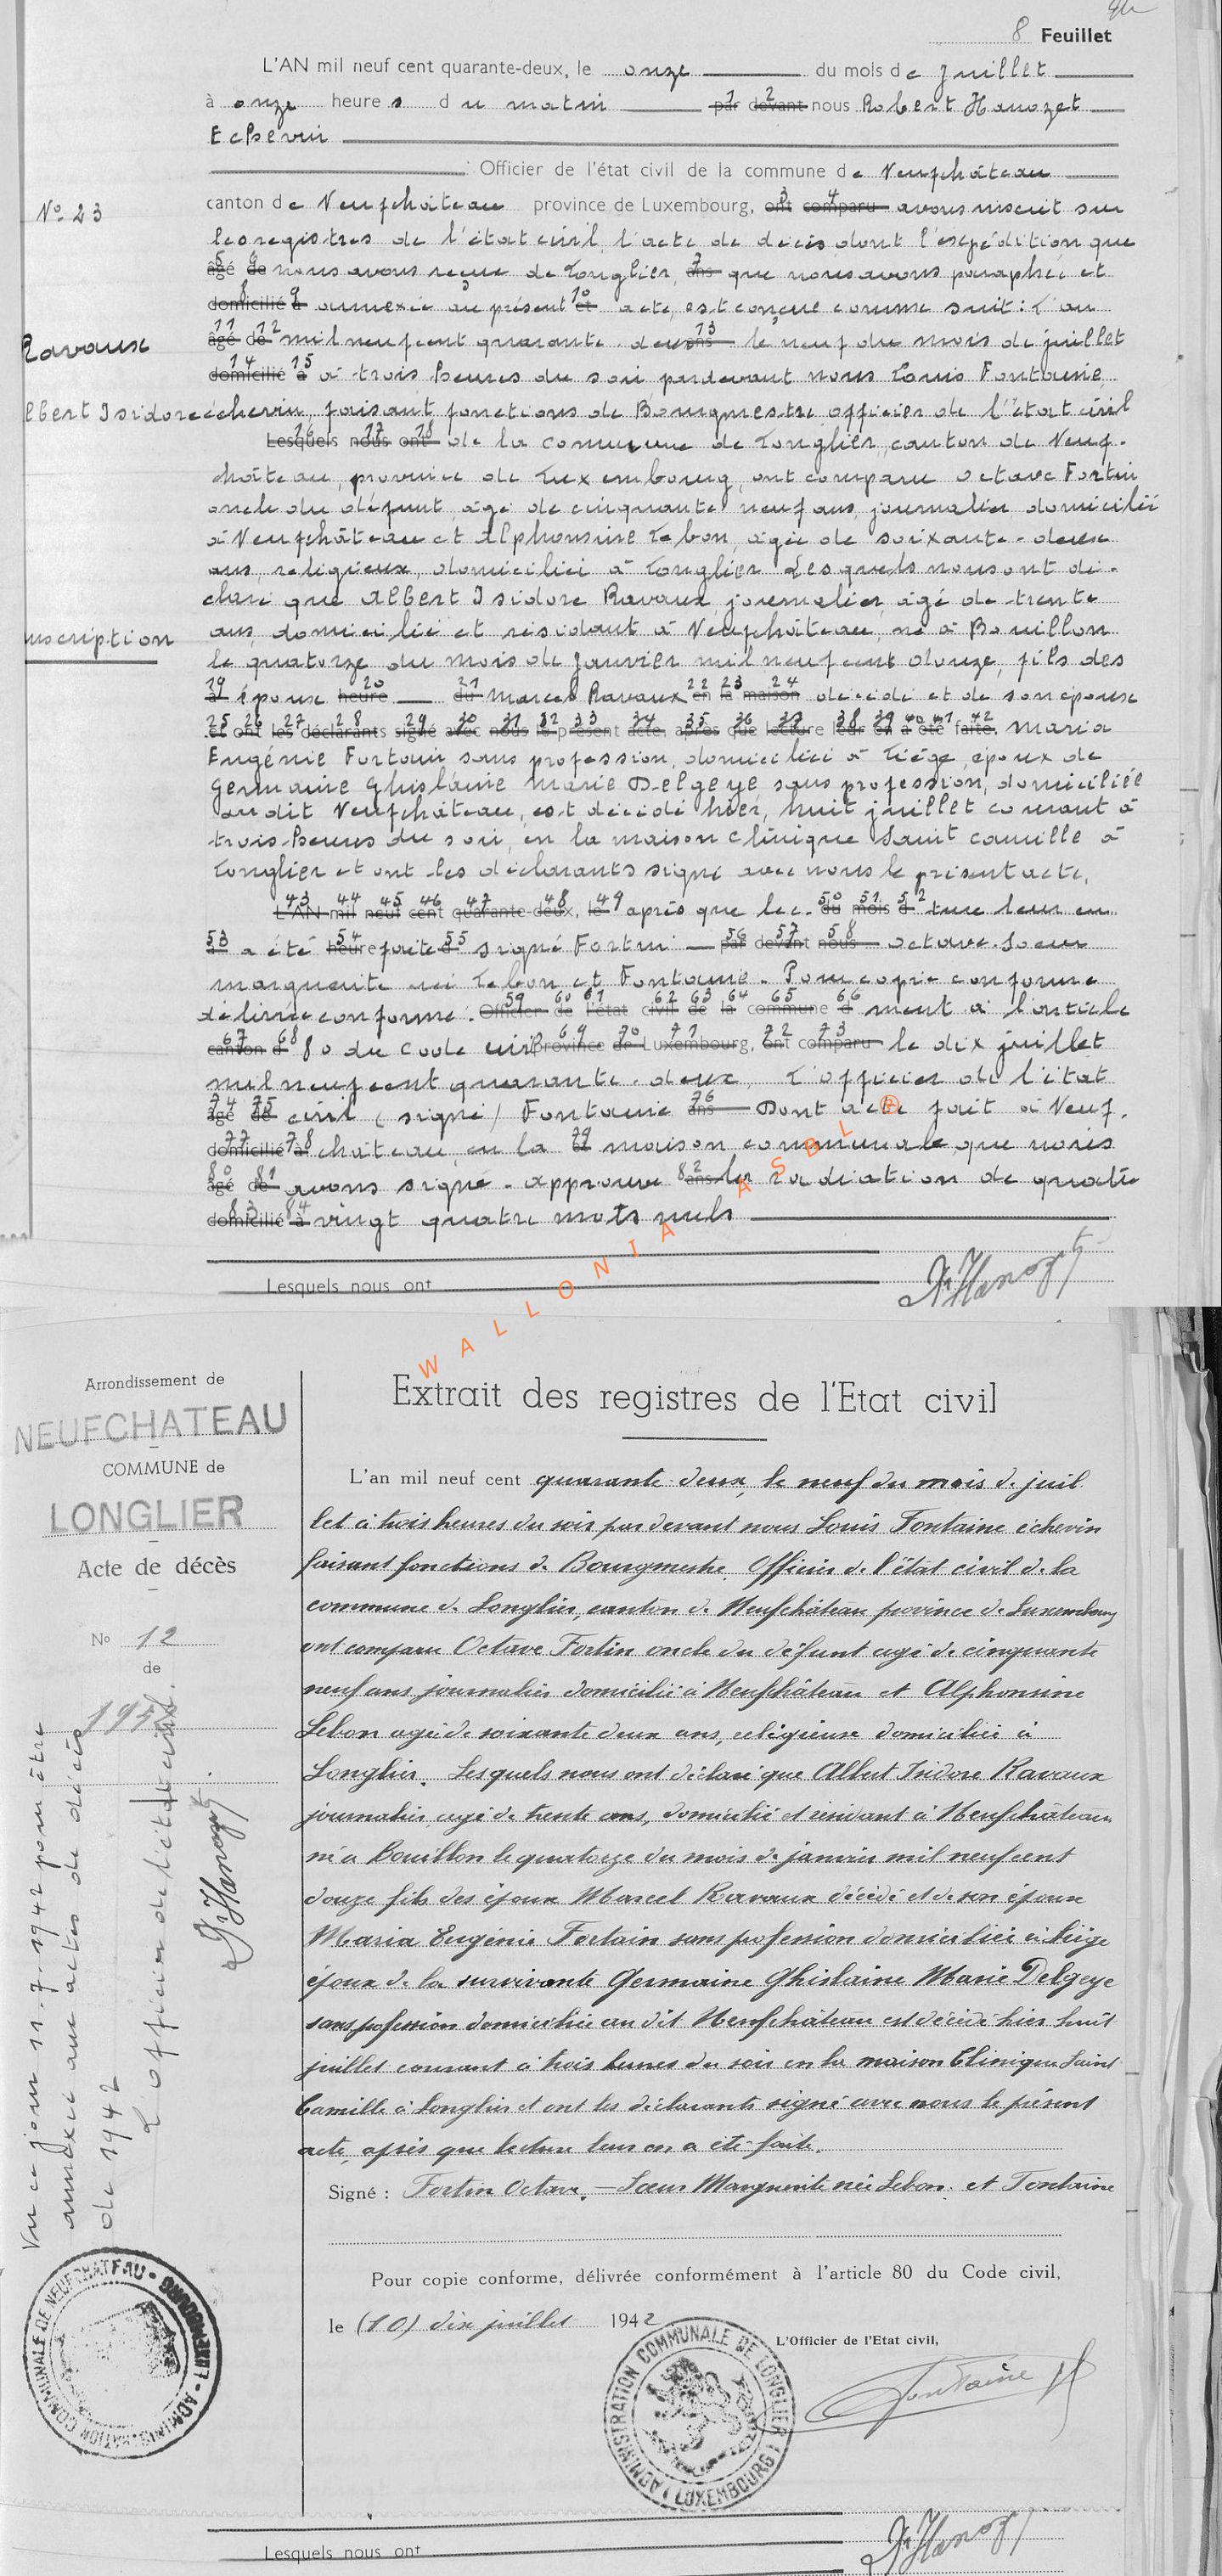 8 Feuillet
L'AN mil neuf cent quarante-deux, le onze du mois de Juillet
à onze heures du matin par devant nous Robert Hanozet
Echevin
Officier de l'état civil de la commune de Neufchâteau
canton de Neufchâteau province de Luxembourg, ont comparu avons inscrit sur
N° 23
les registres de l'état civil, l'acte de décès dont l'expédition que
âgé de nous avons reçue de Longlier, ans que nous avons paraphée et
domicilié à annexée au présent et acte, est conçue comme suit: L'an
âgé de mil neuf cent quarante-deux ans le neuf du mois de juillet
Ravaux
domicilié à à trois heures du soir pardevant nous Louis Fontaine
lbert Isidore
échevin, faisant fonctions de Bourgmestre officier de l'état civil
Lesquels nous ont de la commune de Longlier, canton de Neuf-
château, province de Luxembourg, ont comparu Octave Fortin
oncle du défunt âgé de cinquante neuf ans, journalier domicilié
à Neufchâteau et Alphonsine Lebon, âgée de soixante-deux
ans, religieux, domiciliée à Longlier Lesquels nous ont dé-
claré que Albert Isidore Ravaux, journalier, âgé de trente
ans, domicilié et résidant à Neufchâteau, né à Bouillon
nscription
le quatorze du mois de Janvier mil neuf cent douze, fils des
à époux heure du Marcel Ravaux en la maison décédé et de son épouse
et ont les déclarants signé avec nous le présent acte, après que lecture leur en a été faite. Maria
Eugénie Fortain sans profession, domiciliée à Liège, époux de
Germaine Ghislaine Marie Delgeye, sans profession, domiciliée
au dit Neufchâteau, est décédé hier, huit juillet courant à
trois heures du soir, en la maison clinique Saint Camille à
Longlier et ont les déclarants signé avec nous le présent acte,
L'AN mil neuf cent quarante-deux, le après que lec- du mois d ture leur en
à a été heure faite d signé Fortin par devant nous Octave-Soeur
marguerite née Lebon et Fontaine. Pour copie conforme
délivrée conformé- Officier de l'état civil de la commune d ment à l'article
canton d 80 du Code civil Province de Luxembourg, ont comparu le dix juillet
mil neuf cent quarante-deux, L'officier de l'état
âgé de civil (signé) Fontaine ans Dont acte fait à Neuf-
domicilié à château, en la et maison communale que nous
âgé de avons signé - approuvé ans la radiation de quatre
domicilié à vingt quatre mots nuls
Lesquels nous ont
R. Hanozet
WALLONIA ASBL
Arrondissement de
NEUFCHATEAU
COMMUNE de
LONGLIER
Acte de décès
No 12
de
Vu ce jour 11.7.1942 pour être
annexé aux actes de décès
de 1942
L'officier de l'état civil.
R. Hanozet
ADMINISTRATION COMMUNALE DE NEUFCHATEAU - LUXEMBOURG
Extrait des registres de l'Etat civil
L'an mil neuf cent quarante deux, le neuf du mois de juil
let à trois heures du soir par devant nous Louis Fontaine échevin
faisant fonctions de Bourgmestre, Officier de l'état civil de la
commune de Longlier, canton de Neufchâteau province de Luxembourg
ont comparu Octave Fortin oncle du défunt agé de cinquante
neuf ans journalier domicilié à Neufchâteau et Alphonsine
Lebon agée de soixante deux ans, religieuse domiciliée à
Longlier. Lesquels nous ont déclaré que Albert Isidore Ravaux
journalier, agé de trente ans, domicilié et résidant à Neufchâteau
né à Bouillon le quatorze du mois de janvier mil neuf cent
douze fils des époux Marcel Ravaux décédé et de son épouse
Maria Eugénie Fortain sans profession domiciliée à Liège
époux de la survivante Germaine Ghislaine Marie Delgeye
sans profession domiciliée au dit Neufchâteau est décédé hier huit
juillet courant à trois heures du soir en la maison Clinique Saint
Camille à Longlier et ont les déclarants signé avec nous le présent
acte, après que lecture leur en a été faite.
Signé : Fortin Octave. — Soeur Marguerite née Lebon. et Fontaine
Pour copie conforme, délivrée conformément à l'article 80 du Code civil,
le (10) dix juillet 1942
L'Officier de l'Etat civil,
Fontaine
ADMINISTRATION COMMUNALE DE LONGLIER (LUXEMBOURG)
Lesquels nous ont
R. Hanozet